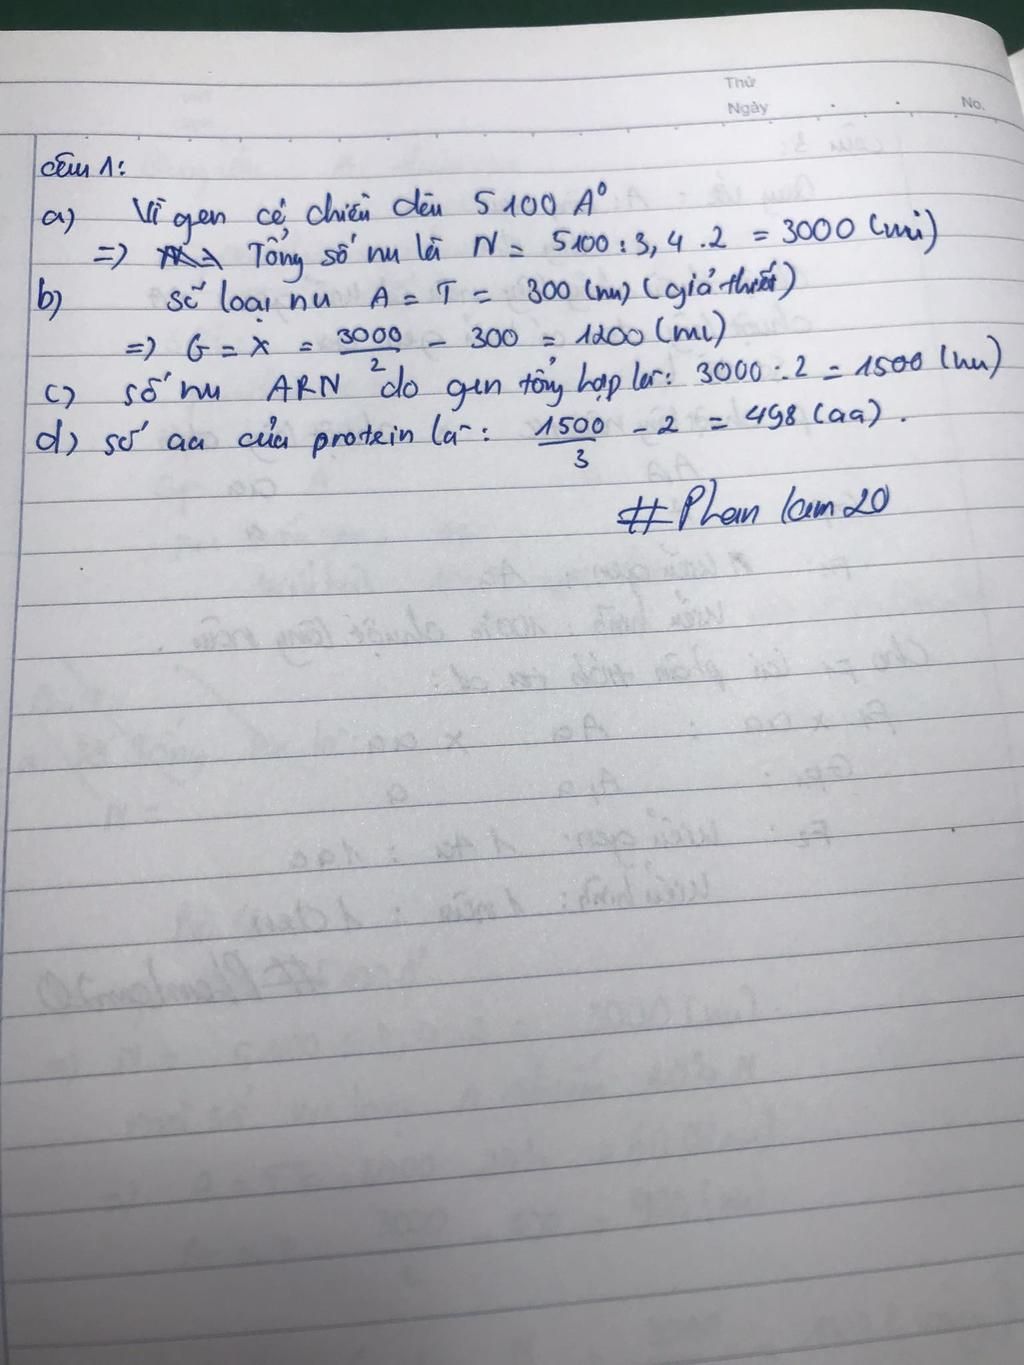 Thứ
Ngày
No.
Câu 1:
a) Vì gen có chiều dài 5100 A⁰
=> Tổng số nu là N = 5100 : 3,4 . 2 = 3000 (nu)
b) số loại nu A = T = 300 (nu) (giả thiết)
=> G = X = 3000/2 - 300 = 1200 (nu)
c) số nu ARN do gen tổng hợp là: 3000 : 2 = 1500 (nu)
d) số aa của protein là: 1500/3 - 2 = 498 (aa).
#Phan lam20